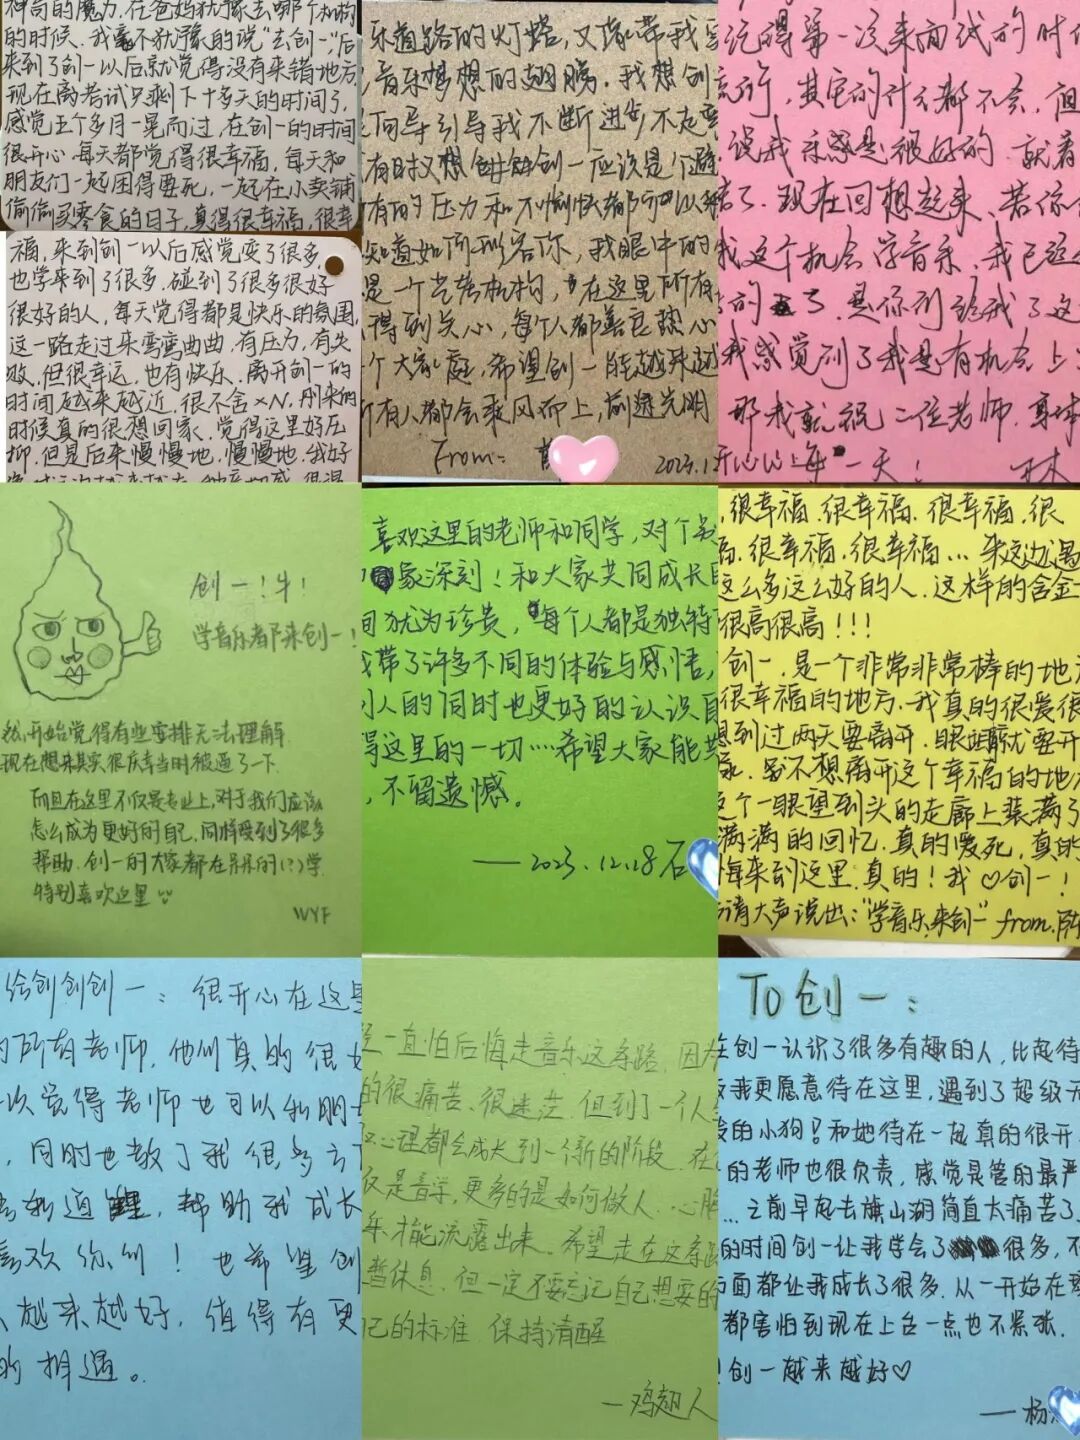 神奇的魔力,在爸妈犹豫去哪个机构
的时候,我毫不犹豫的说“去创一”,后
来到了创一以后就觉得没有来错地方
现在离考试只剩下十多天的时间了,
感觉五个多月一晃而过,在创一的时间
很开心,每天都觉得很幸福,每天和
朋友们一起困得要死,一起在小卖铺
偷偷买零食的日子,真得很幸福,很幸
福,来到创一以后感觉变了很多
也学来到了很多,碰到了很多很好
很好的人,每天觉得都是快乐的氛围,
这一路走过来弯弯曲曲,有压力,有失
败,但很幸运,也有快乐,离开创一的
时间越来越近,很不舍×N,刚来的
时候真的很想回家,觉得这里好压
抑,但是后来慢慢地,慢慢地,我好
乐道路的灯塔,又像带我
音乐梦想的翅膀,我想创
向导引导我不断进步不走弯
有时又想创一应该是个避
有的压力和不愉快都可以
知道如何形容你,我眼中的
是一个艺考机构,在这里所有
得到关心,每个人都善良热心
个大家庭,希望创一能越来越
所有人都会乘风而上,前途光明
From:
记得第一次来面试的时
其它的什么都不会,但
说我乐感是很好的,就着
现在回想起来、若你
我这个机会学音乐,我已经
的了,是你们给我了这
我感觉到了我是有机会上
那我就祝二位老师,身体
开心心每一天!
林
创一!牛!
学音乐都来创一!
我开始觉得有些安排无法理解
现在想来其实很庆幸当时被逼了一下.
而且在这里不仅是专业上,对于我们应该
怎么成为更好的自己,同样受到了很多
帮助.创一的大家都在
特别喜欢这里
WYF
喜欢这里的老师和同学,对个
象深刻!和大家共同成长
间尤为珍贵,每个人都是独特
带了许多不同的体验与感悟,
别人的同时也更好的认识
这里的一切……希望大家能
,不留遗憾。
——2023.12.18石
,很幸福,很幸福,很幸福,很
福,很幸福,很幸福…来这边遇
这么多这么好的人,这样的含金
很高很高!!!
创一,是一个非常非常棒的地
很幸福的地方,我真的很爱很
想到过两天要离开,眼睛就要开
不想离开这个幸福的地
这个一眼望到头的走廊上装满了
满满的回忆,真的爱死,真的
悔来到这里,真的!我♡创一!
请大声说出:“学音乐,来创一”from.陈
给创创创一:很开心在这里
的所有老师,他们真的很好
次觉得老师也可以和朋
,同时也教了我很多
道,帮助我成长
喜欢你们!也希望创
越来越好,值得有更
的相遇。
一直怕后悔走音乐这条路,因为
的很痛苦、很迷茫,但到了一个人
心理都会成长到一个新的阶段,在
仅是音学,更多的是如何做人,心
乐才能流露出来。希望走在这条路
暂休息,但一定不要忘记自己想要的
己的标准,保持清醒
—鸡翅人
TO创一:
在创一认识了很多有趣的人,比起待
我更愿意待在这里,遇到了超级无
的小狗!和她待在一起真的很开
的老师也很负责,感觉是管的最严
…之前早起去旗山湖简直太痛苦了
的时间创一让我学会了很多,不
面都让我成长了很多,从一开始在
都害怕到现在上台一点也不紧张.
创一越来越好♡
——杨